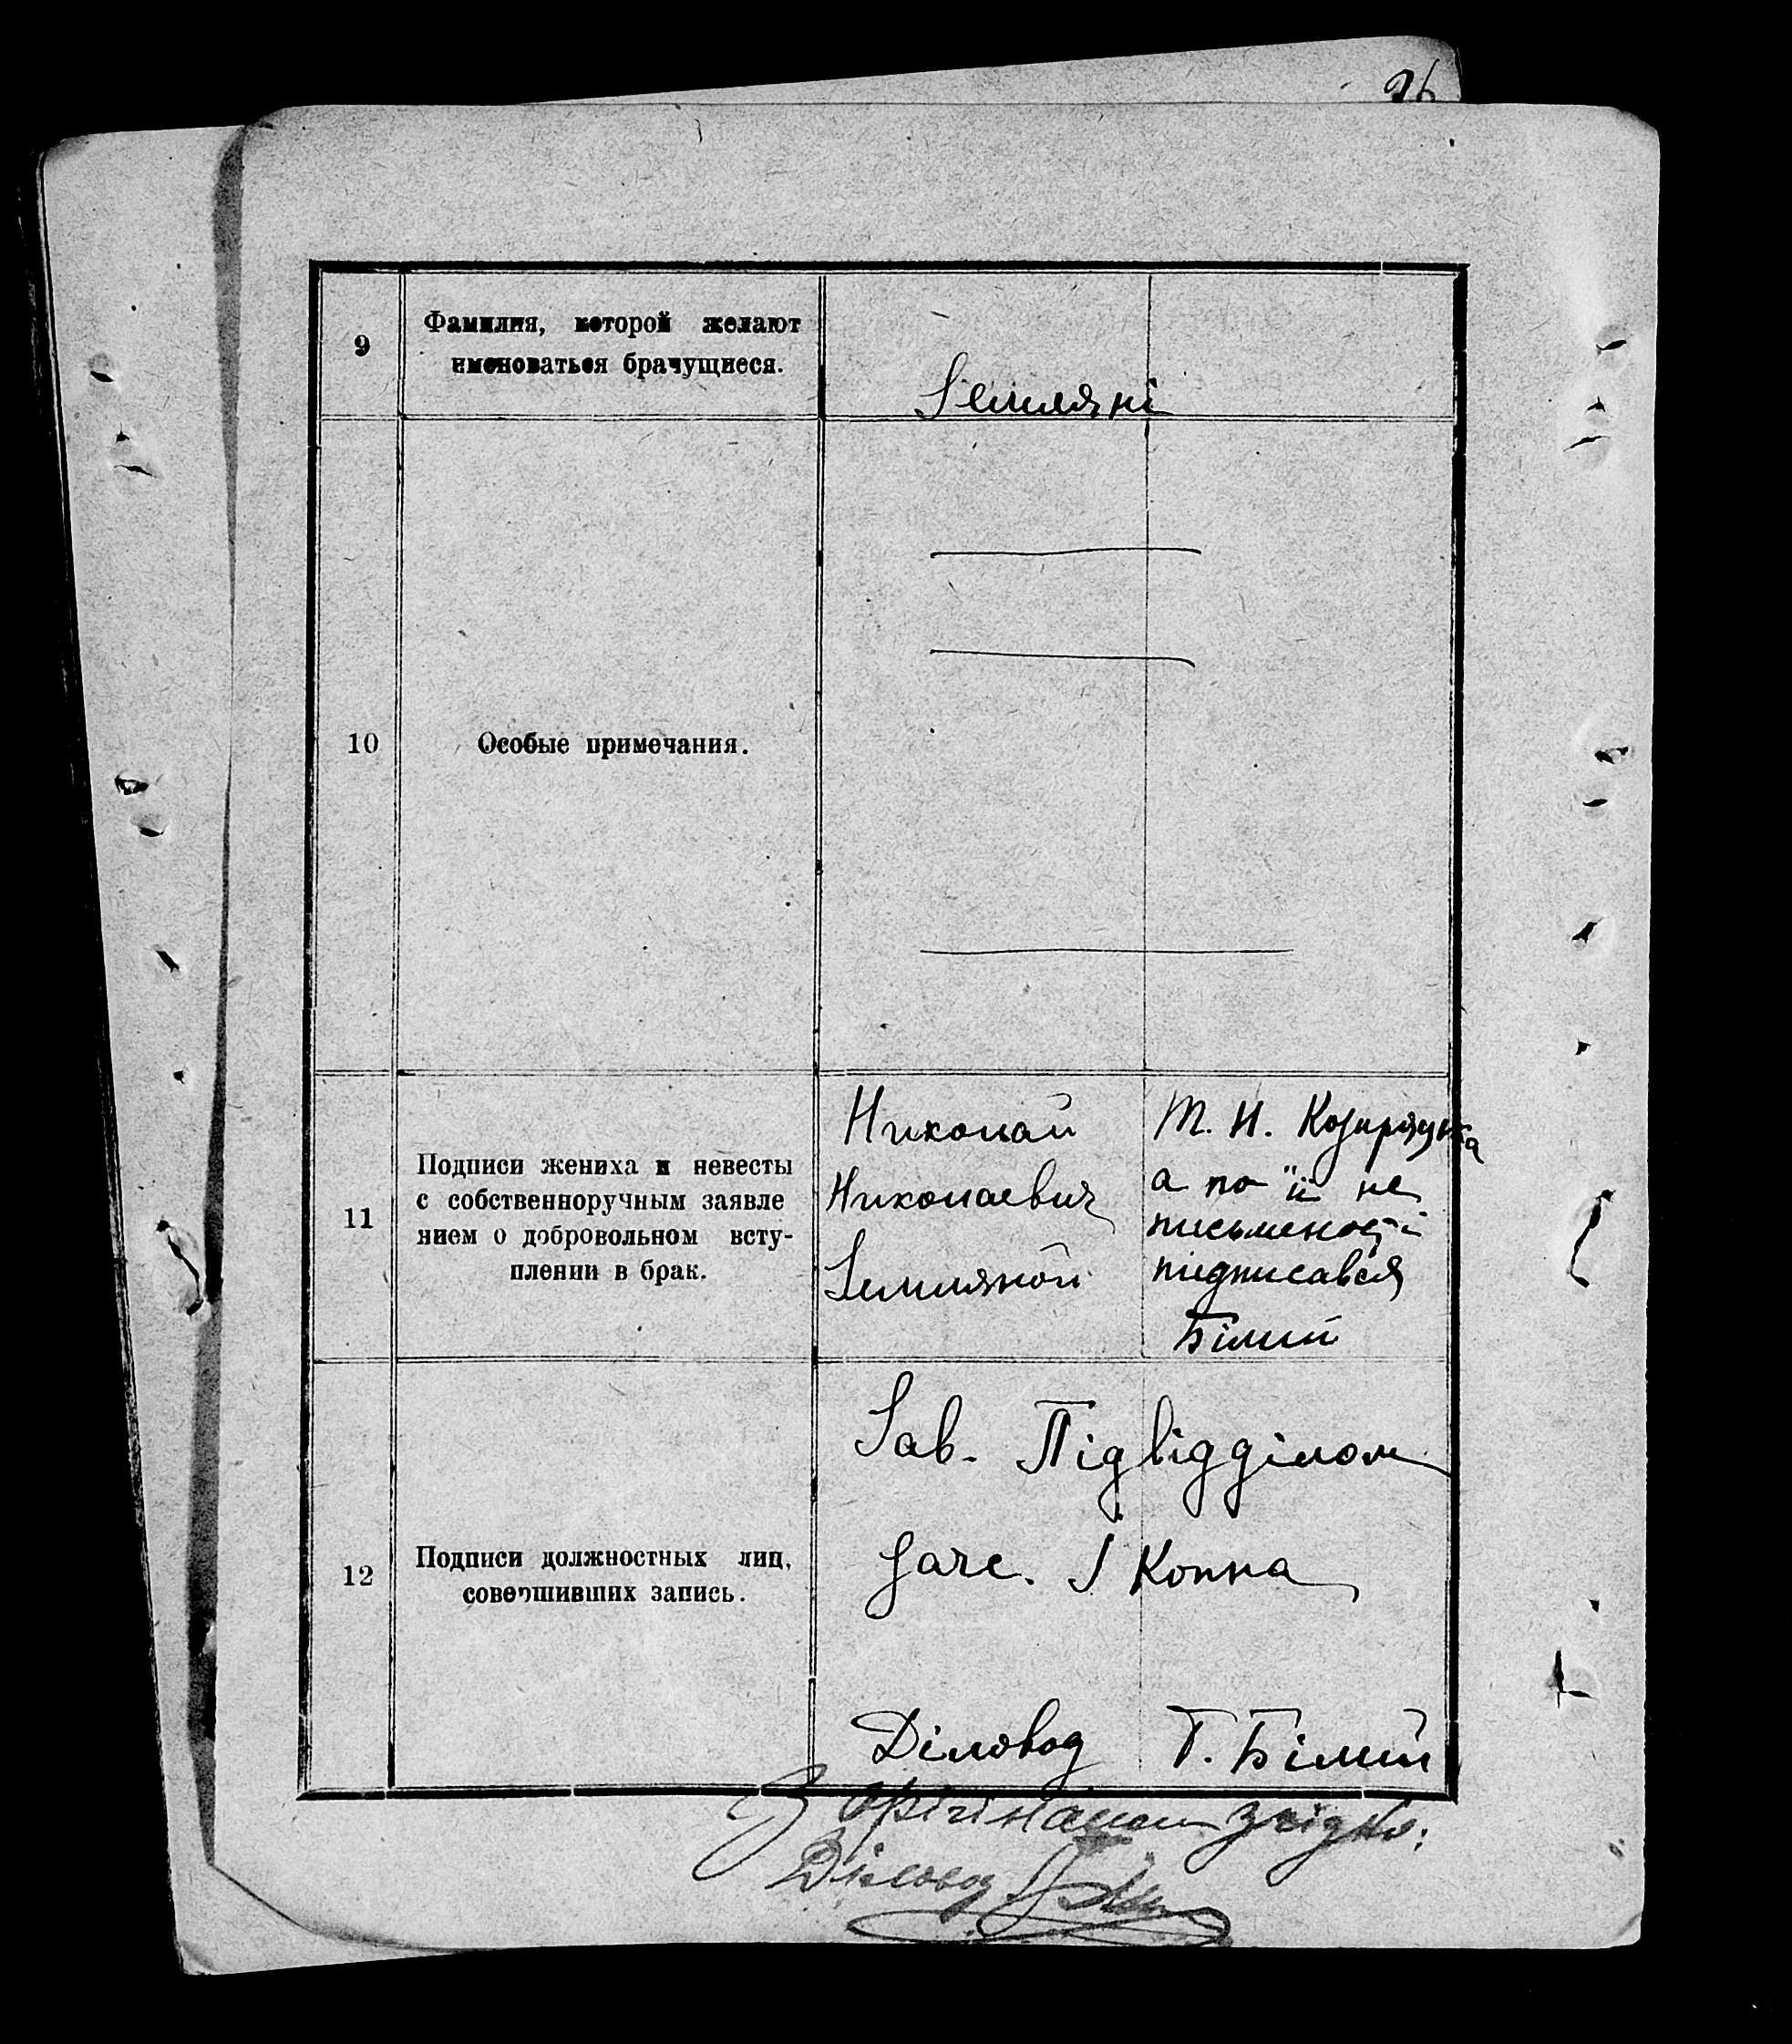 26
9
Фамилия, которой желают
именоваться брачущиеся.
Земляні
10
Особые примечания.
11
Подписи жениха и невесты
с собственноручным заявле
нием о добровольном всту-
плении в брак.
Николай
Николаевич
Земляной
Т. Н.
а по її не
письменості
підписався
Білий
12
Подписи должностных лиц,
совершивших запись.
Зав. Підвідділом
Загс.
Діловод Г. Білий
З орігіналом згідно:
Діловод